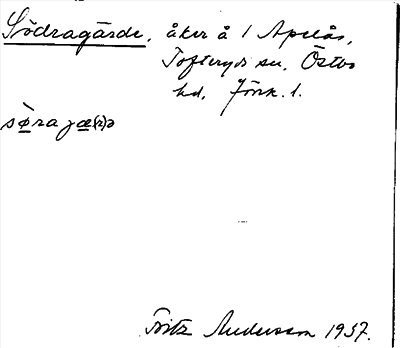 Södragärde, åker å 1 Apelås,
Tofteryds sn. Östbo
hd, Jönk. l.
Fritz Andersson 1937.